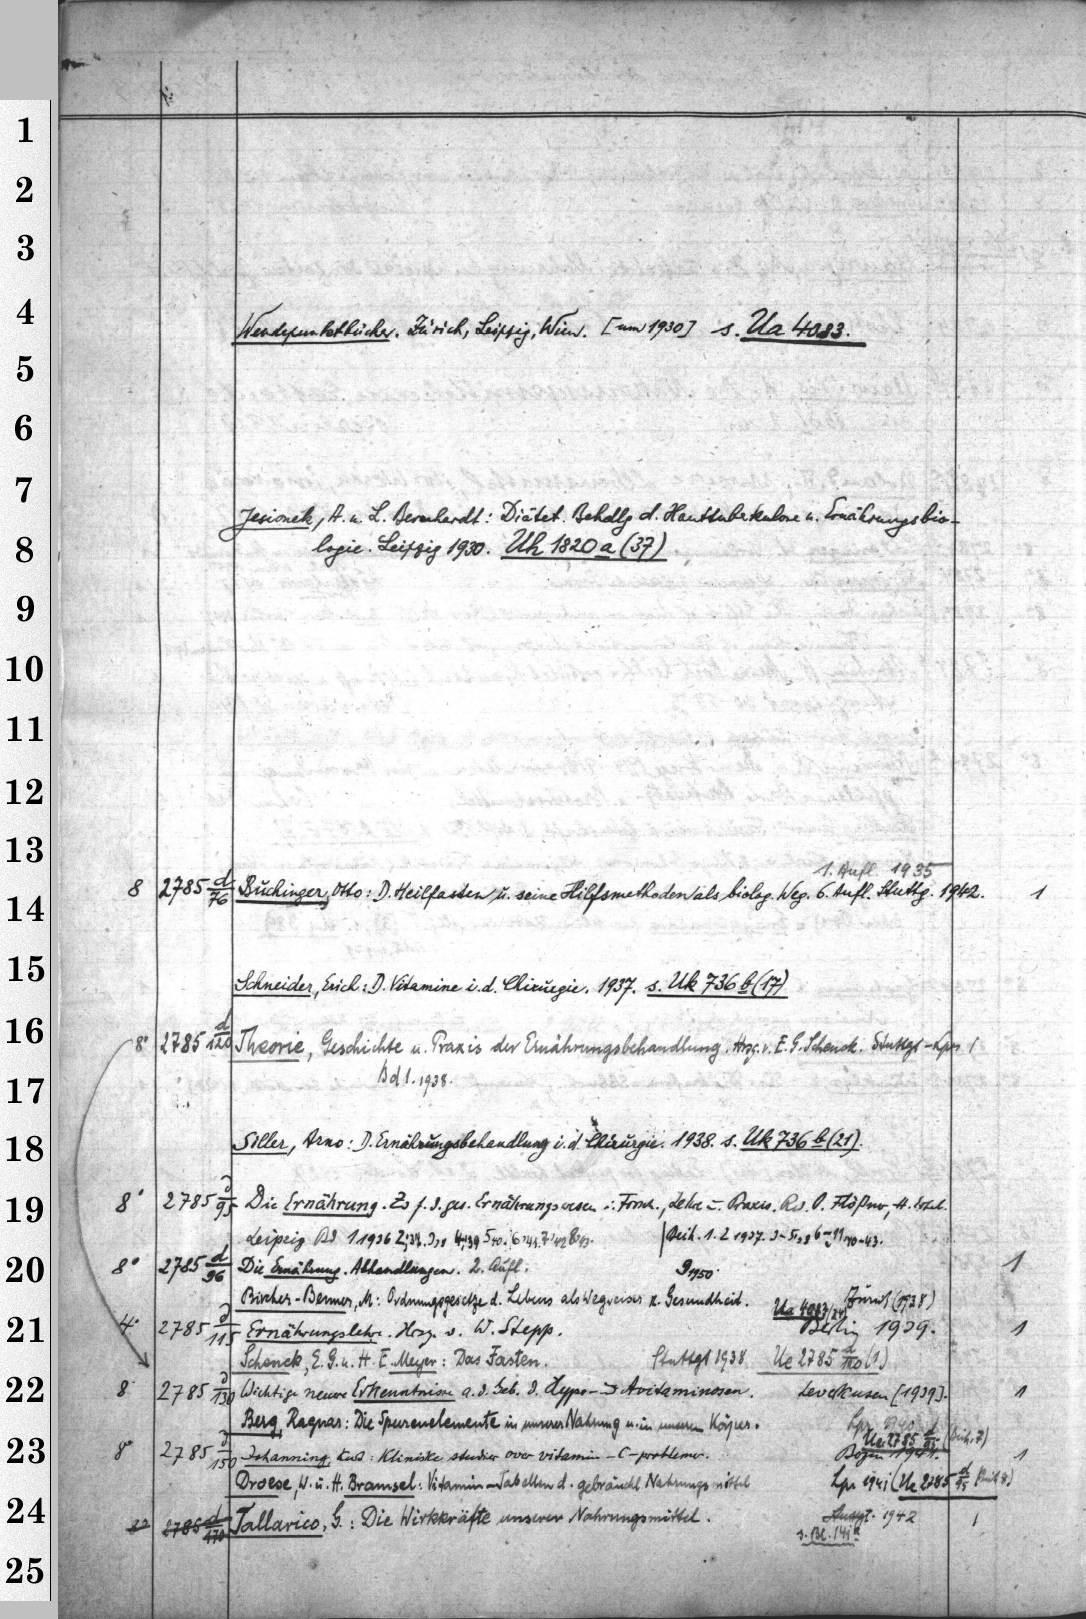 1
2
3
4
Wendepunktbücher. Zürich, Leipzig, Wien. [um 1930] s. Ua 4083.
5
6
7
Jesionek, A. u. L. Bernhardt: Diätet. Behdlg d. Hauttuberkulose u. Ernährungsbio-
8
logie. Leipzig 1930. Uh 1820 a (37)
9
10
11
12
13
1. Aufl. 1935
14
8 2785 d/76 Buchinger, Otto: D. Heilfasten u. seine Hilfsmethoden als biolog. Weg. 6. Aufl. Stuttg. 1942. 1
15
Schneider, Erich: D. Vitamine i. d. Chirurgie. 1937. s. Uk 736 b (17)
16
8° 2785 d/120 Theorie, Geschichte u. Praxis der Ernährungsbehandlung. Hrsg. v. E. G. Schenck. Stuttgt-Lpz 1
17
Bd 1. 1938.
18
Siller, Arno: D. Ernährungsbehandlung i. d. Chirurgie. 1938. s. Uk 736 b (21).
19
8° 2785 d/95 Die Ernährung. Zs f. d. ges. Ernährungswesen in Forsch., Lehre u. Praxis. Red. O. Flößner, H.
Leipzig Bd 1. 1936 Beih. 1. 2 1937.
20
8° 2785 d/96 Die Ernährung. Abhandlungen. 2. Aufl. 1950. 1
Bircher-Benner, M.: Ordnungsgesetze d. Lebens als Wegweiser z. Gesundheit. Zürich (1938)
Ua 4083
21
4° 2785 d/115 Ernährungslehre. Hrsg. v. W. Stepp. Berlin 1939. 1
Schenck, E. G. u. H. E. Meyer: Das Fasten. Stuttgt 1938 Ue 2785 d/120 (1)
22
8 2785 d/130 Wichtige neuere Erkenntnisse a. d. Geb. d. Hypo- u. Avitaminosen. Leverkusen [1939]. 1
Berg, Ragnar: Die Spurenelemente in unserer Nahrung u. in unserem Körper. Lpz. 1940
Ue 2785 d/95 (Beih. 7)
23
8° 2785 d/150 Johanning, Knud: Kliniske studier over vitamin-C-problemer. 1
Droese, W. u. H. Bramsel: Vitamin-Tabellen d. gebräuchl Nahrungsmittel Lpz 1941 (Ue 2785 d/95 Beih 8)
24
8° 2785 d/170 Tallarico, G.: Die Wirkkräfte unserer Nahrungsmittel. Stuttgt. 1942 1
s. Bl. 141a
25